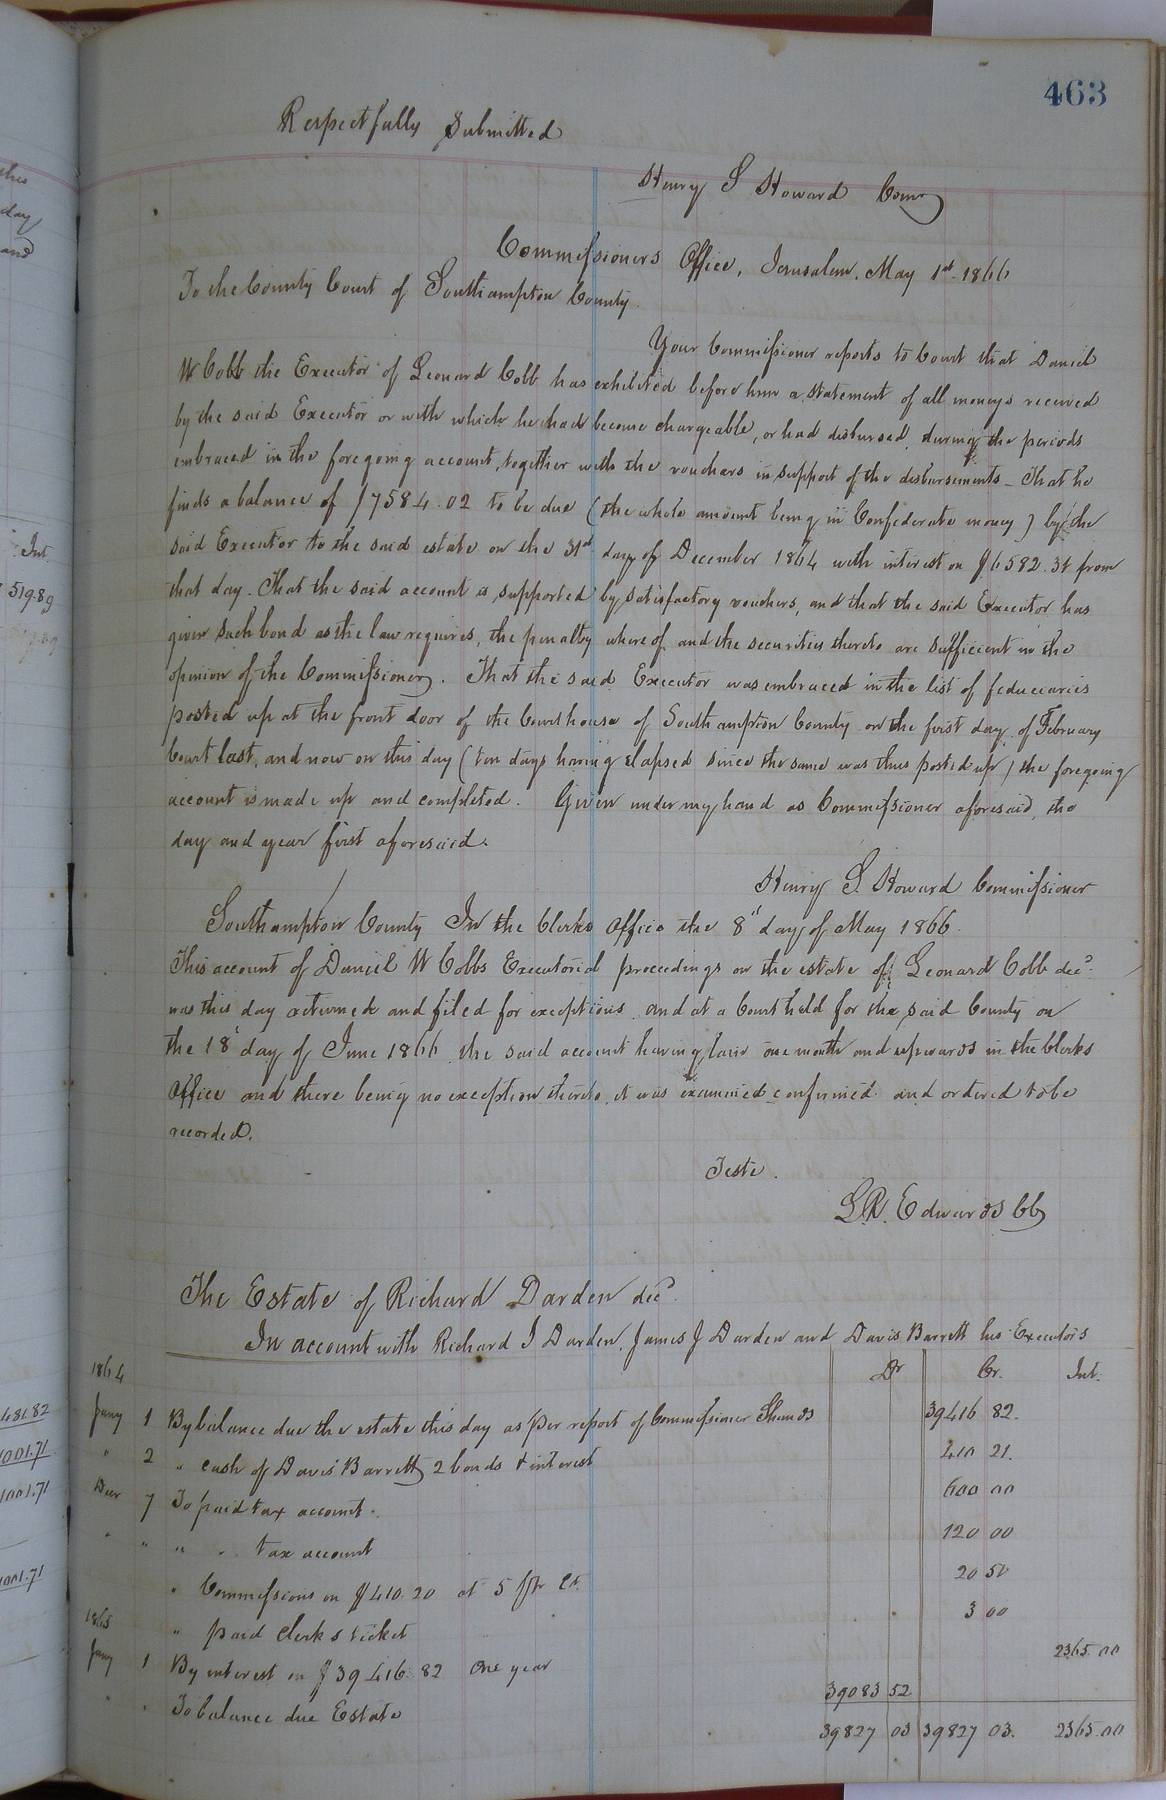 463
Respectfully Submitted
Henry S Howard Comr
Commissioners Office, Jerusalem. May 1st 1866
To the County Court of Southampton County
Your Commissioner reports to Court that Daniel
W Cobb the Executor of Leonard Cobb has exhibited before him a statement of all moneys received
by the said Executor or with which he had become chargeable, or had disbursed during the periods
embraced in the foregoing account, together with the vouchers in support of the disbursements - That he
finds a balance of $7584.02 to be due (the whole amount being in Confederate money) by the
said Executor to the said estate on the 31st day of December 1864 with interest on $6592.34 from
that day. That the said account is supported by satisfactory vouchers, and that the said Executor has
given such bond as the law requires, the penalty whereof and the securities thereto are sufficient in the
opinion of the Commissioner. That the said Executor was embraced in the list of feduciaries
posted up at the front door of the Courthouse of Southampton County on the first day of February
Court last, and now on this day (ten days having elapsed since the same was thus posted up) the foregoing
account is made up and completed. Given under my hand as Commissioner aforesaid, the
day and year first aforesaid.
Henry S. Howard Commissioner
Southampton County In the Clerks Office the 8" day of May 1866
This account of Daniel W Cobbs Executorial proceedings on the estate of Leonard Cobb decd
was this day returned and filed for exceptions and at a Court held for the said County on
the 18' day of June 1866 the said account having lain one month and upwards in the Clerks
Office and there being no exception thereto, it was examined confirmed and ordered to be
recorded.
Teste.
L.R. Edwards CC
The Estate of Richard Darden decd
In account with Richard I Darden, James J Darden and Davis Barrett his Executors
1864 Dr Cr. Int.
Jany 1 By balance due the estate this day as per report of Commissioner Shands 39416 82.
" 2 " cash of Davis Barrett 2 bonds & interest 410 21.
Decr 7 To paid tax account. 600 00
" " " " tax account 120 00
" Commissions on $410.20 at 5 pr Ct 20 50
1865 " paid Clerks ticket 3 00
Jany 1 By interest on $39416.82 One year 2365.00
" " To balance due Estate 39083 52
39827 03 39827 03. 2365.00
Int.
519.89
481.82
1001.71
1001.71
1001.71
day
and